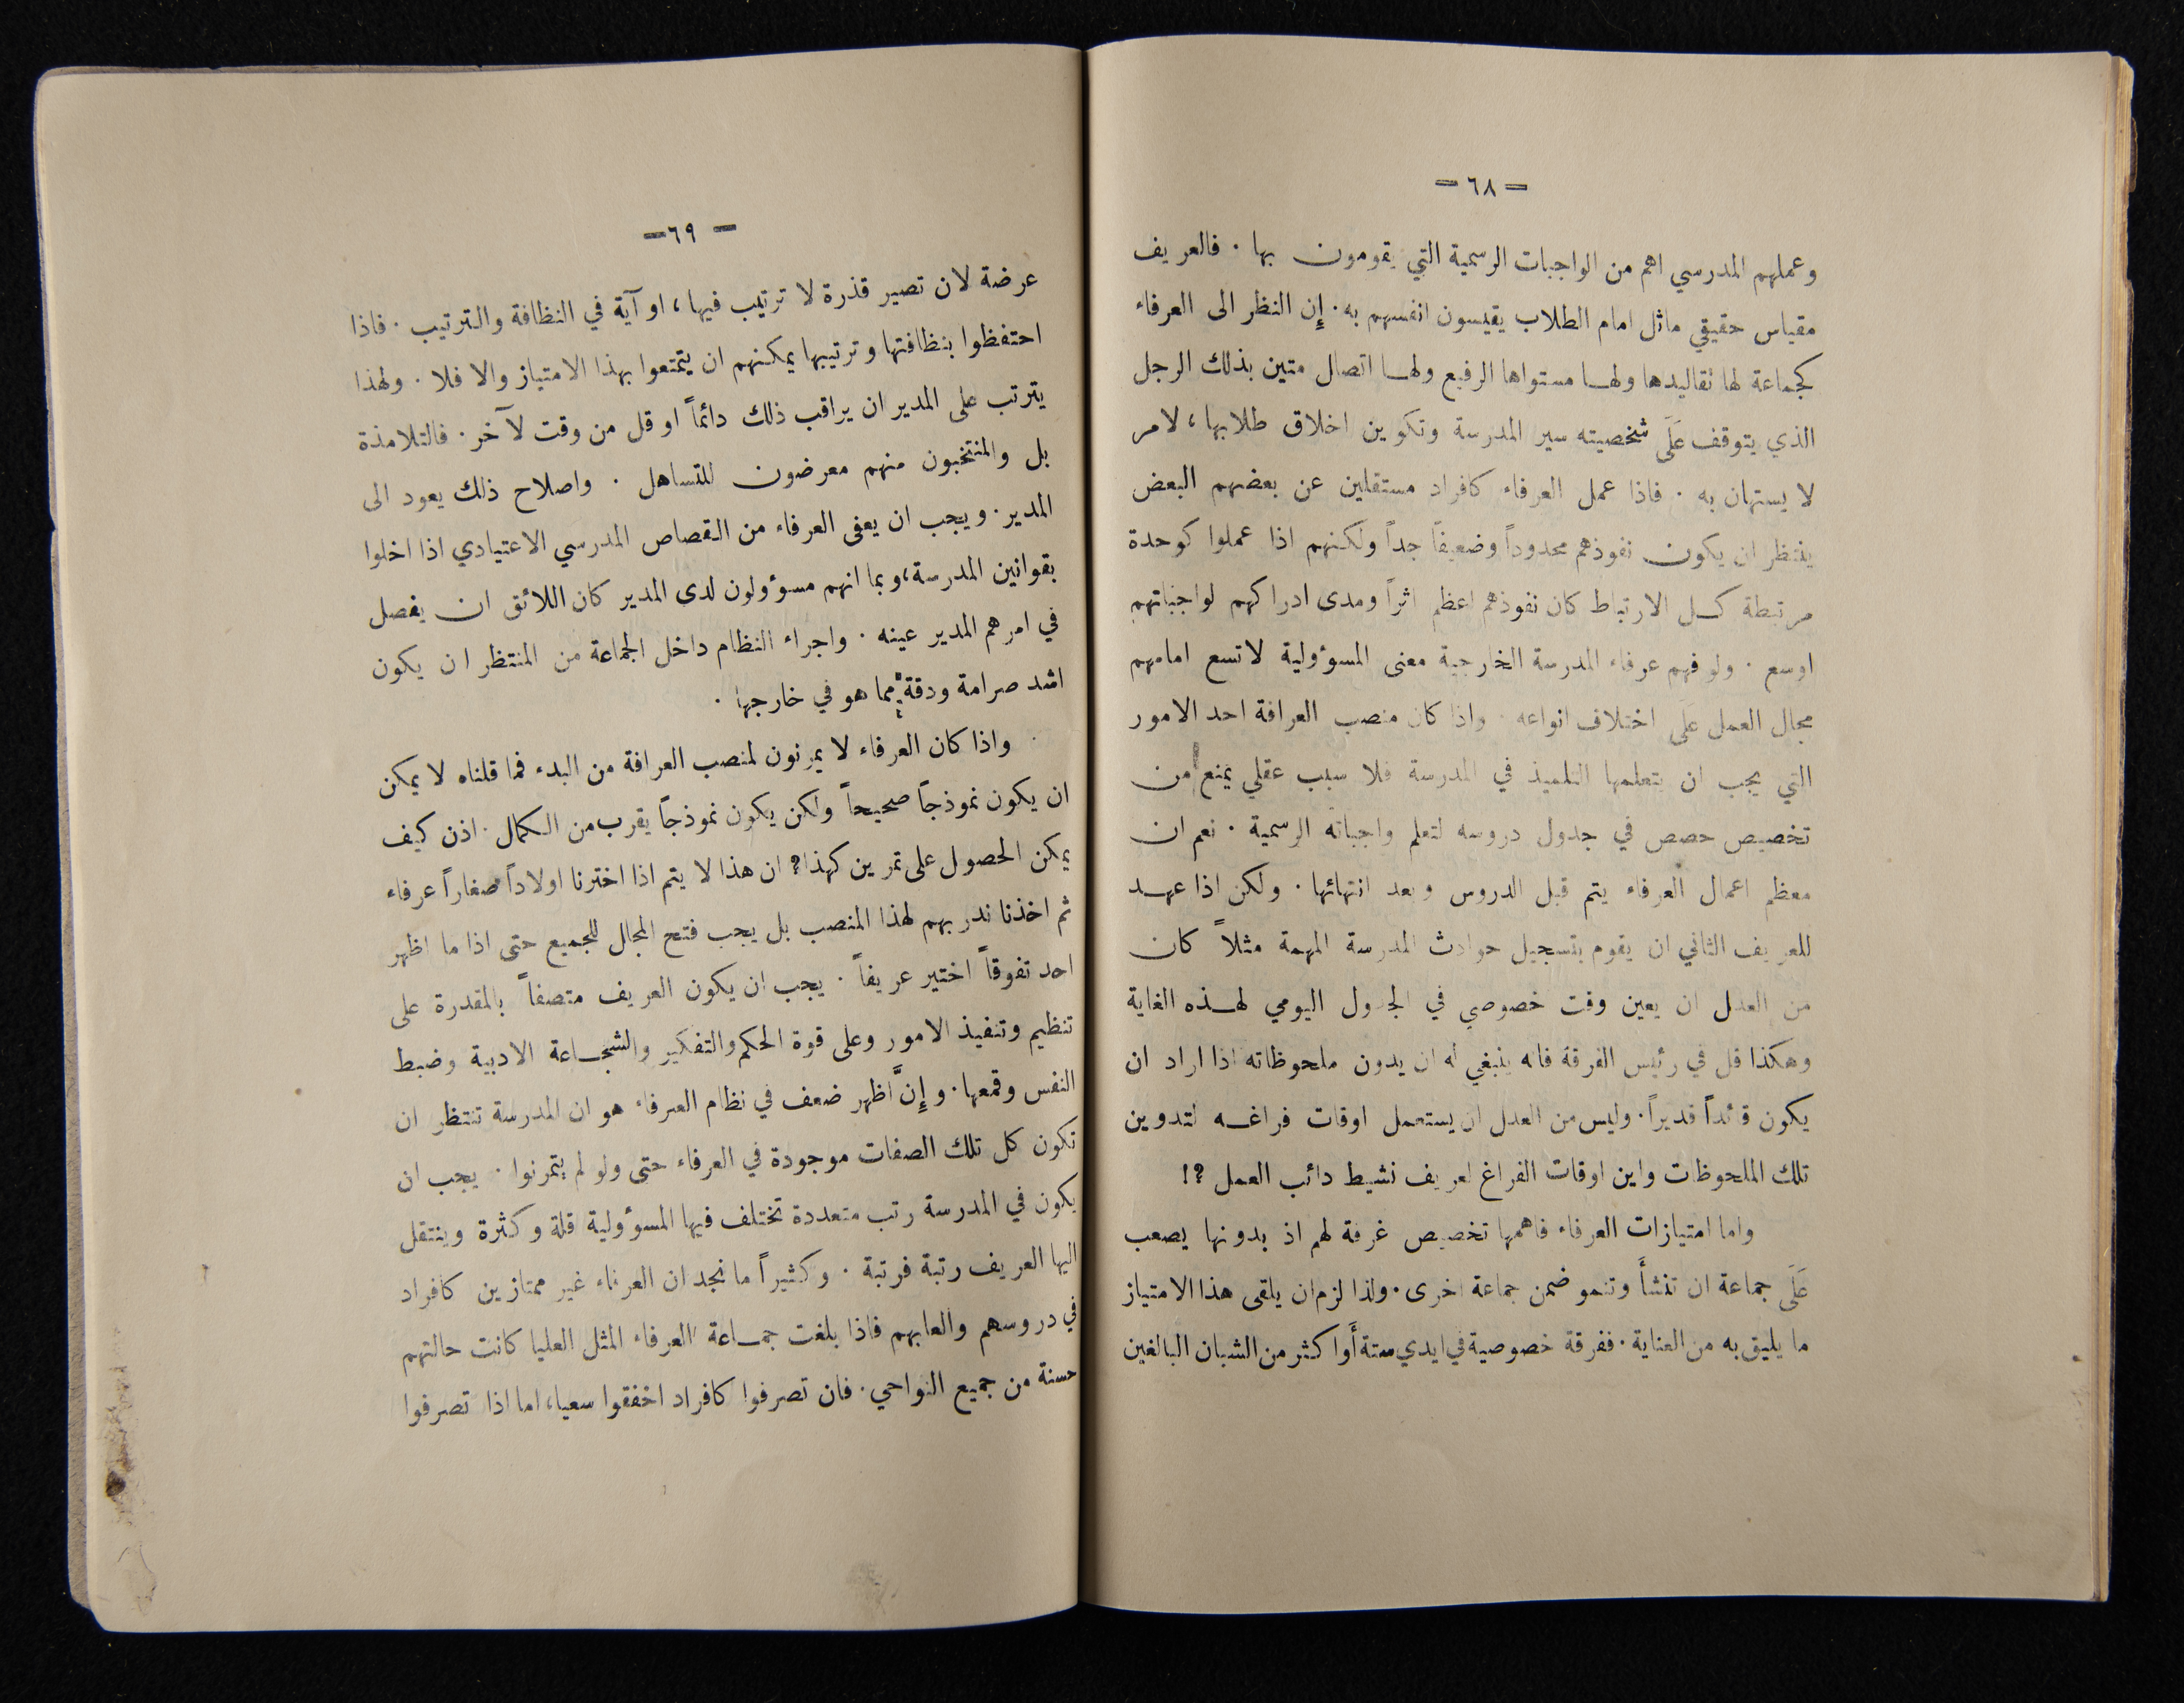 — ٦٨ —
وعملهم المدرسي اهم من الواجبات الرسمية التي يقومون بها . فالعريف
مقياس حقيقي ماثل امام الطلاب يقيسون انفسهم به . إِن النظر الى العرفاء
كجماعة لها تقاليدها ولها مستواها الرفيع ولها اتصال متين بذلك الرجل
الذي يتوقف عَلَى شخصيته سير المدرسة وتكوين اخلاق طلابها ، لامر
لا يستهان به . فاذا عمل العرفاء كافراد مستقلين عن بعضهم البعض
ينتظر ان يكون نفوذهم محدوداً وضعيفاً جداً ولكنهم اذا عملوا كوحدة
مرتبطة كل الارتباط كان نفوذهم اعظم اثراً ومدى ادراكهم لواجباتهم
اوسع . ولو فهم عرفاء المدرسة الخارجية معنى المسؤولية لاتسع امامهم
مجال العمل عَلَى اختلاف انواعه . واذا كان منصب العرافة احد الامور
التي يجب ان يتعلمها التلميذ في المدرسة فلا سبب عقلي يمنع من
تخصيص حصص في جدول دروسه لتعلم واجباته الرسمية . نعم ان
معظم اعمال العرفاء يتم قبل الدروس وبعد انتهائها . ولكن اذا عهد
للعريف الثاني ان يقوم بتسجيل حوادث المدرسة المهمة مثلاً كان
من العدل ان يعين وقت خصوصي في الجدول اليومي لهذه الغاية
وهكذا قل في رئيس الفرقة فانه ينبغي له ان يدون ملحوظاته اذا اراد ان
يكون قائداً قديراً . وليس من العدل ان يستعمل اوقات فراغه لتدوين
تلك الملحوظات واين اوقات الفراغ لعريف نشيط دائب العمل ؟!
واما امتيازات العرفاء فاهمها تخصيص غرفة لهم اذ بدونها يصعب
عَلَى جماعة ان تنشأَ وتنمو ضمن جماعة اخرى . ولذا لزم ان يلقى هذا الامتياز
ما يليق به من العناية . فغرفة خصوصية في ايدي ستة أَو اكثر من الشبان البالغين
— ٦٩ —
عرضة لان تصير قذرة لا ترتيب فيها ، او آية في النظافة والترتيب . فاذا
احتفظوا بنظافتها وترتيبها يمكنهم ان يتمتعوا بهذا الامتياز والا فلا . ولهذا
يترتب على المدير ان يراقب ذلك دائماً او قل من وقت لآخر . فالتلامذة
بل والمنتخبون منهم معرضون للتساهل . واصلاح ذلك يعود الى
المدير . ويجب ان يعفى العرفاء من القصاص المدرسي الاعتيادي اذا اخلوا
بقوانين المدرسة ، وبما انهم مسؤولون لدى المدير كان اللائق ان يفصل
في امرهم المدير عينه . واجراء النظام داخل الجماعة من المنتظر ان يكون
اشد صرامة ودقة مما هو في خارجها .
واذا كان العرفاء لا يمرنون لمنصب العرافة من البدء فما قلناه لا يمكن
ان يكون نموذجاً صحيحاً ولكن يكون نموذجاً يقرب من الكمال . اذن كيف
يمكن الحصول على تمرين كهذا ؟ ان هذا لا يتم اذا اخترنا اولاداً صغاراً عرفاء
ثم اخذنا ندربهم لهذا المنصب بل يجب فتح المجال للجميع حتى اذا ما اظهر
احد تفوقاً اختير عريفاً . يجب ان يكون العريف متصفاً بالمقدرة على
تنظيم وتنفيذ الامور وعلى قوة الحكم والتفكير والشجاعة الادبية وضبط
النفس وقمعها . و إِنَّ اظهر ضعف في نظام العرفاء هو ان المدرسة تنتظر ان
تكون كل تلك الصفات موجودة في العرفاء حتى ولو لم يتمرنوا . يجب ان
يكون في المدرسة رتب متعددة تختلف فيها المسؤولية قلة وكثرة وينتقل
اليها العريف رتبة فرتبة . وكثيراً ما نجد ان العرفاء غير ممتازين كافراد
في دروسهم والعابهم فاذا بلغت جماعة العرفاء المثل العليا كانت حالتهم
حسنة من جميع النواحي . فان تصرفوا كافراد اخفقوا سعيا ، اما اذا تصرفوا